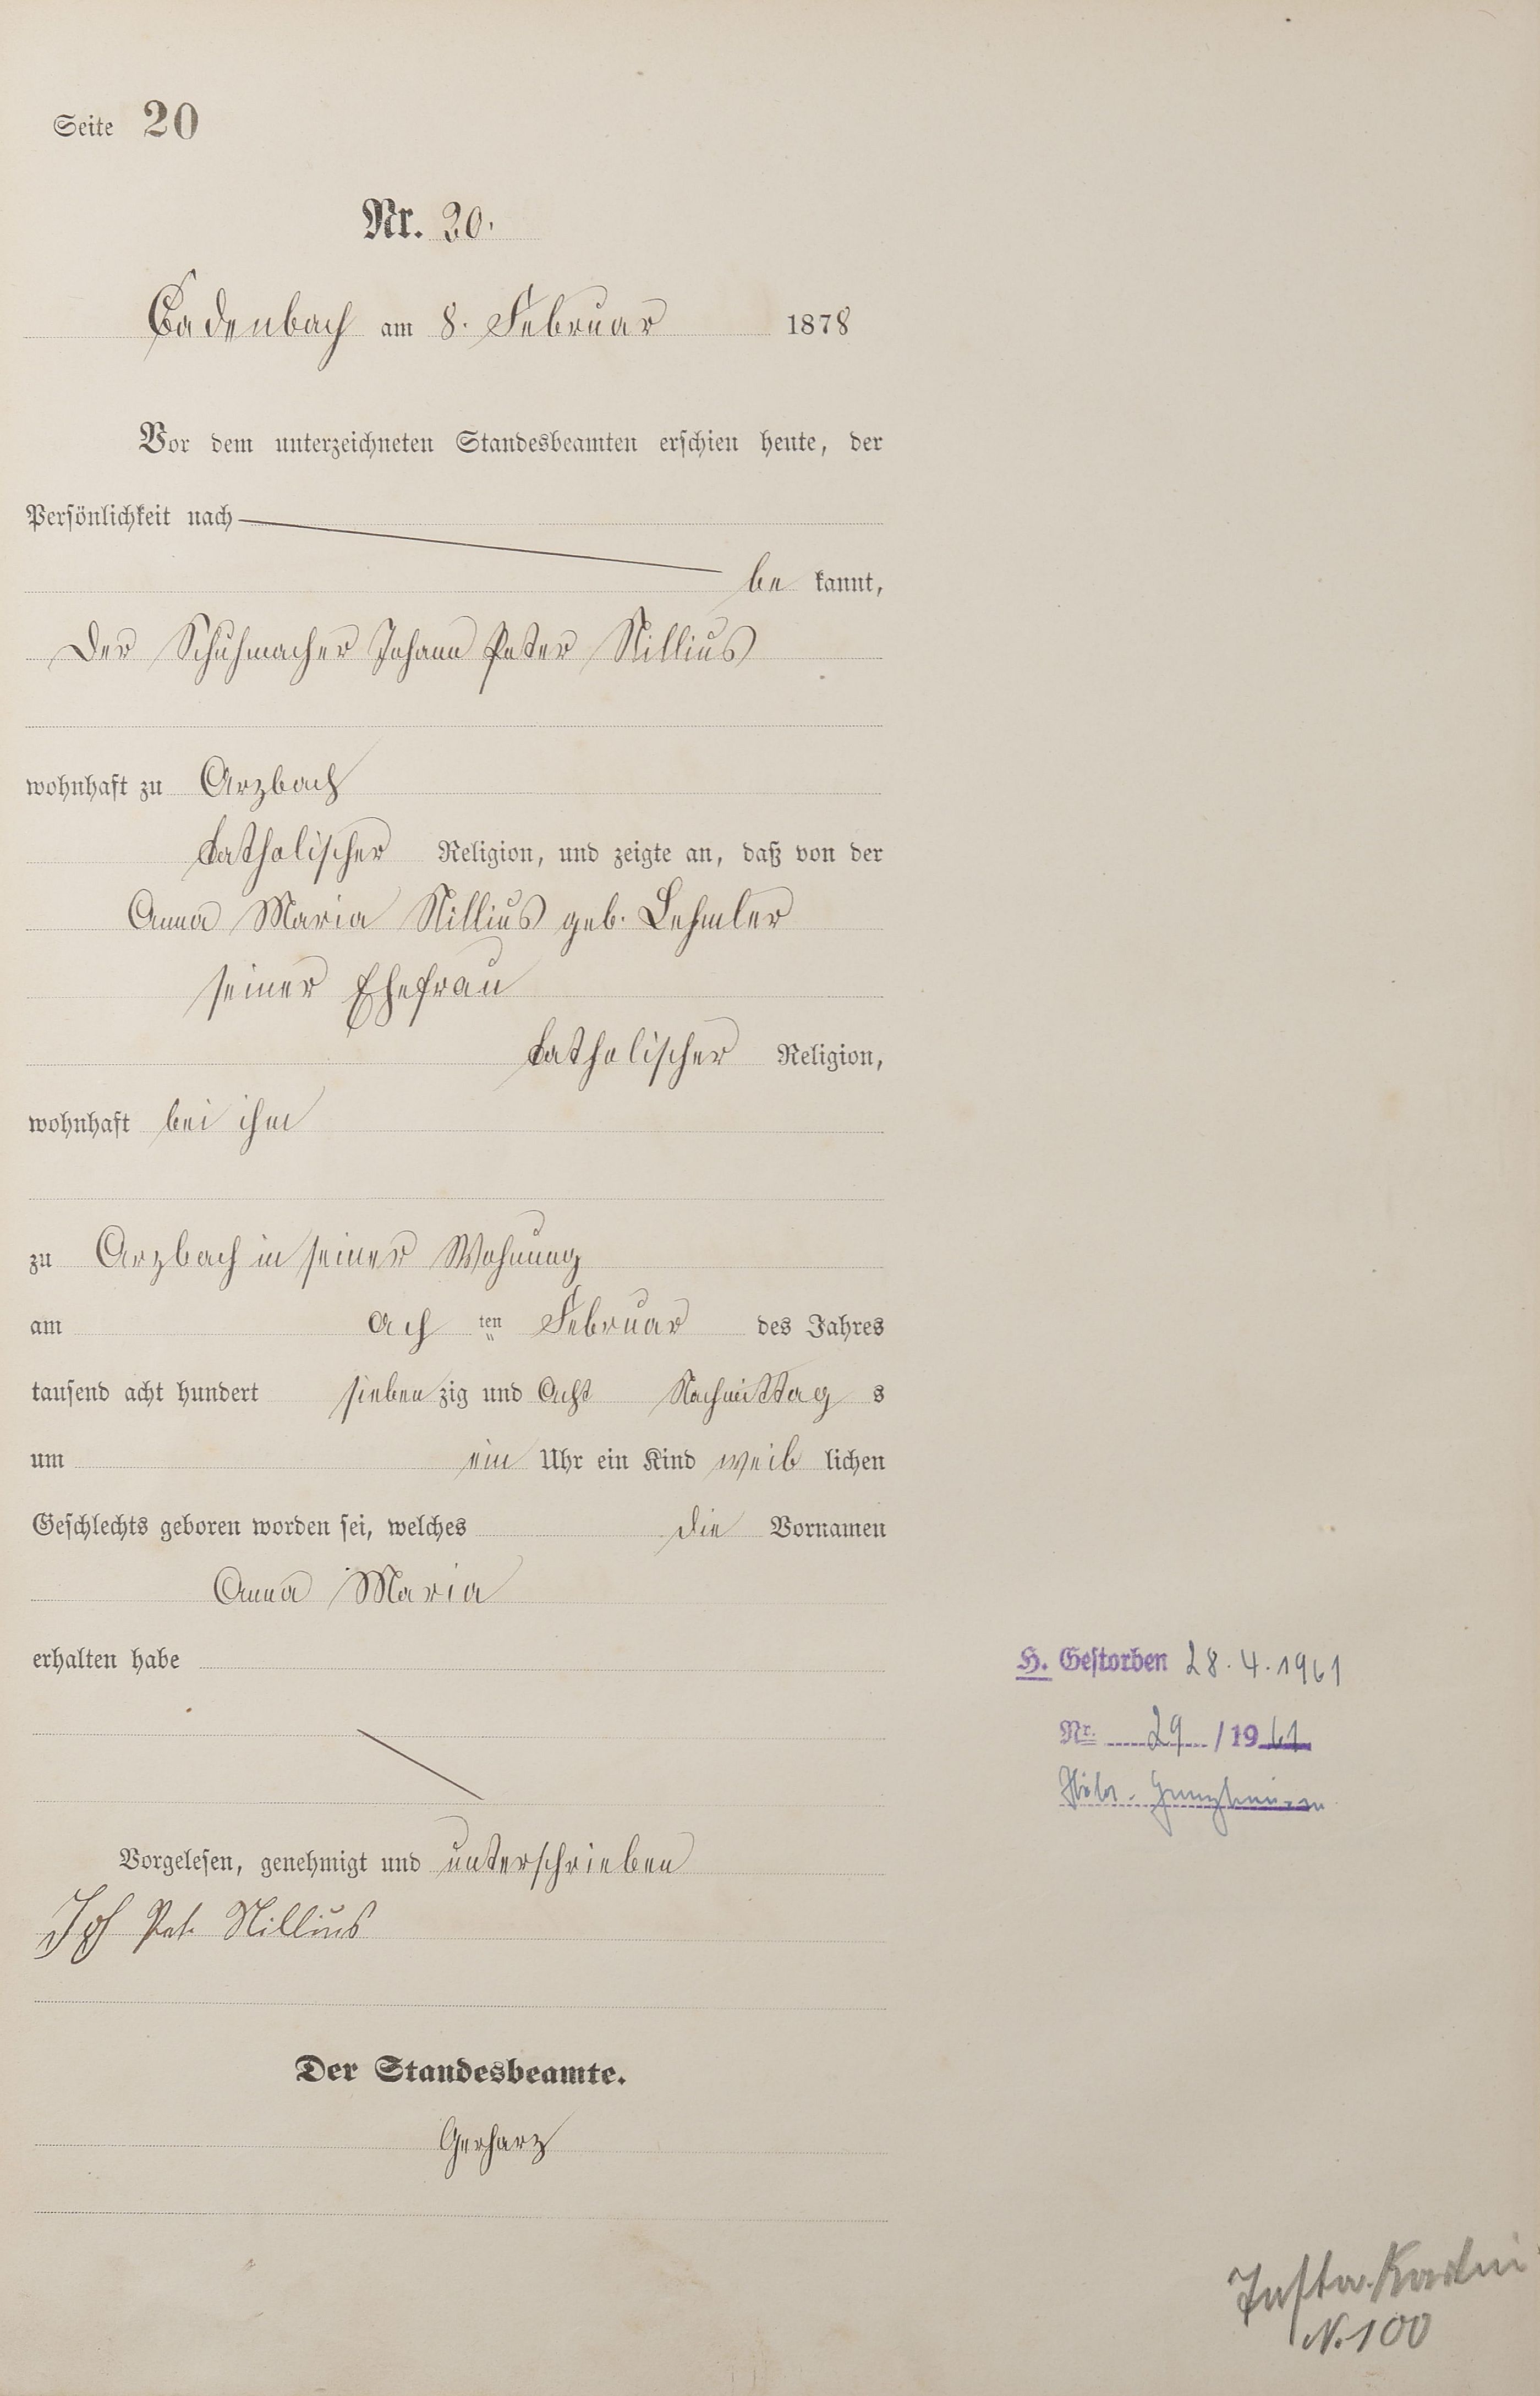 Seite 20
Nr. 20.
Cadenbach am 8. Februar 1878
Vor dem unterzeichneten Standesbeamten erschien heute, der
Persönlichkeit nach
be kannt,
der Schuhmacher Johann Peter Nillius
wohnhaft zu Arzbach
katholischer Religion, und zeigte an, daß von der
Anna Maria Nillius geb. Lehmler
seiner Ehefrau
katholischer Religion,
wohnhaft bei ihm
zu Arzbach in seiner Wohnung
am ach ten Februar des Jahres
tausend acht hundert sieben zig und acht Nachmittag s
um ein Uhr ein Kind weib lichen
Geschlechts geboren worden sei, welches die Vornamen
Anna Maria
erhalten habe
H. Gestorben 28.4.1961
Nr. 29 / 1961
Vorgelesen, genehmigt und unterschrieben
Joh Pet. Nillius
Der Standesbeamte.
Gerharz
N. 100